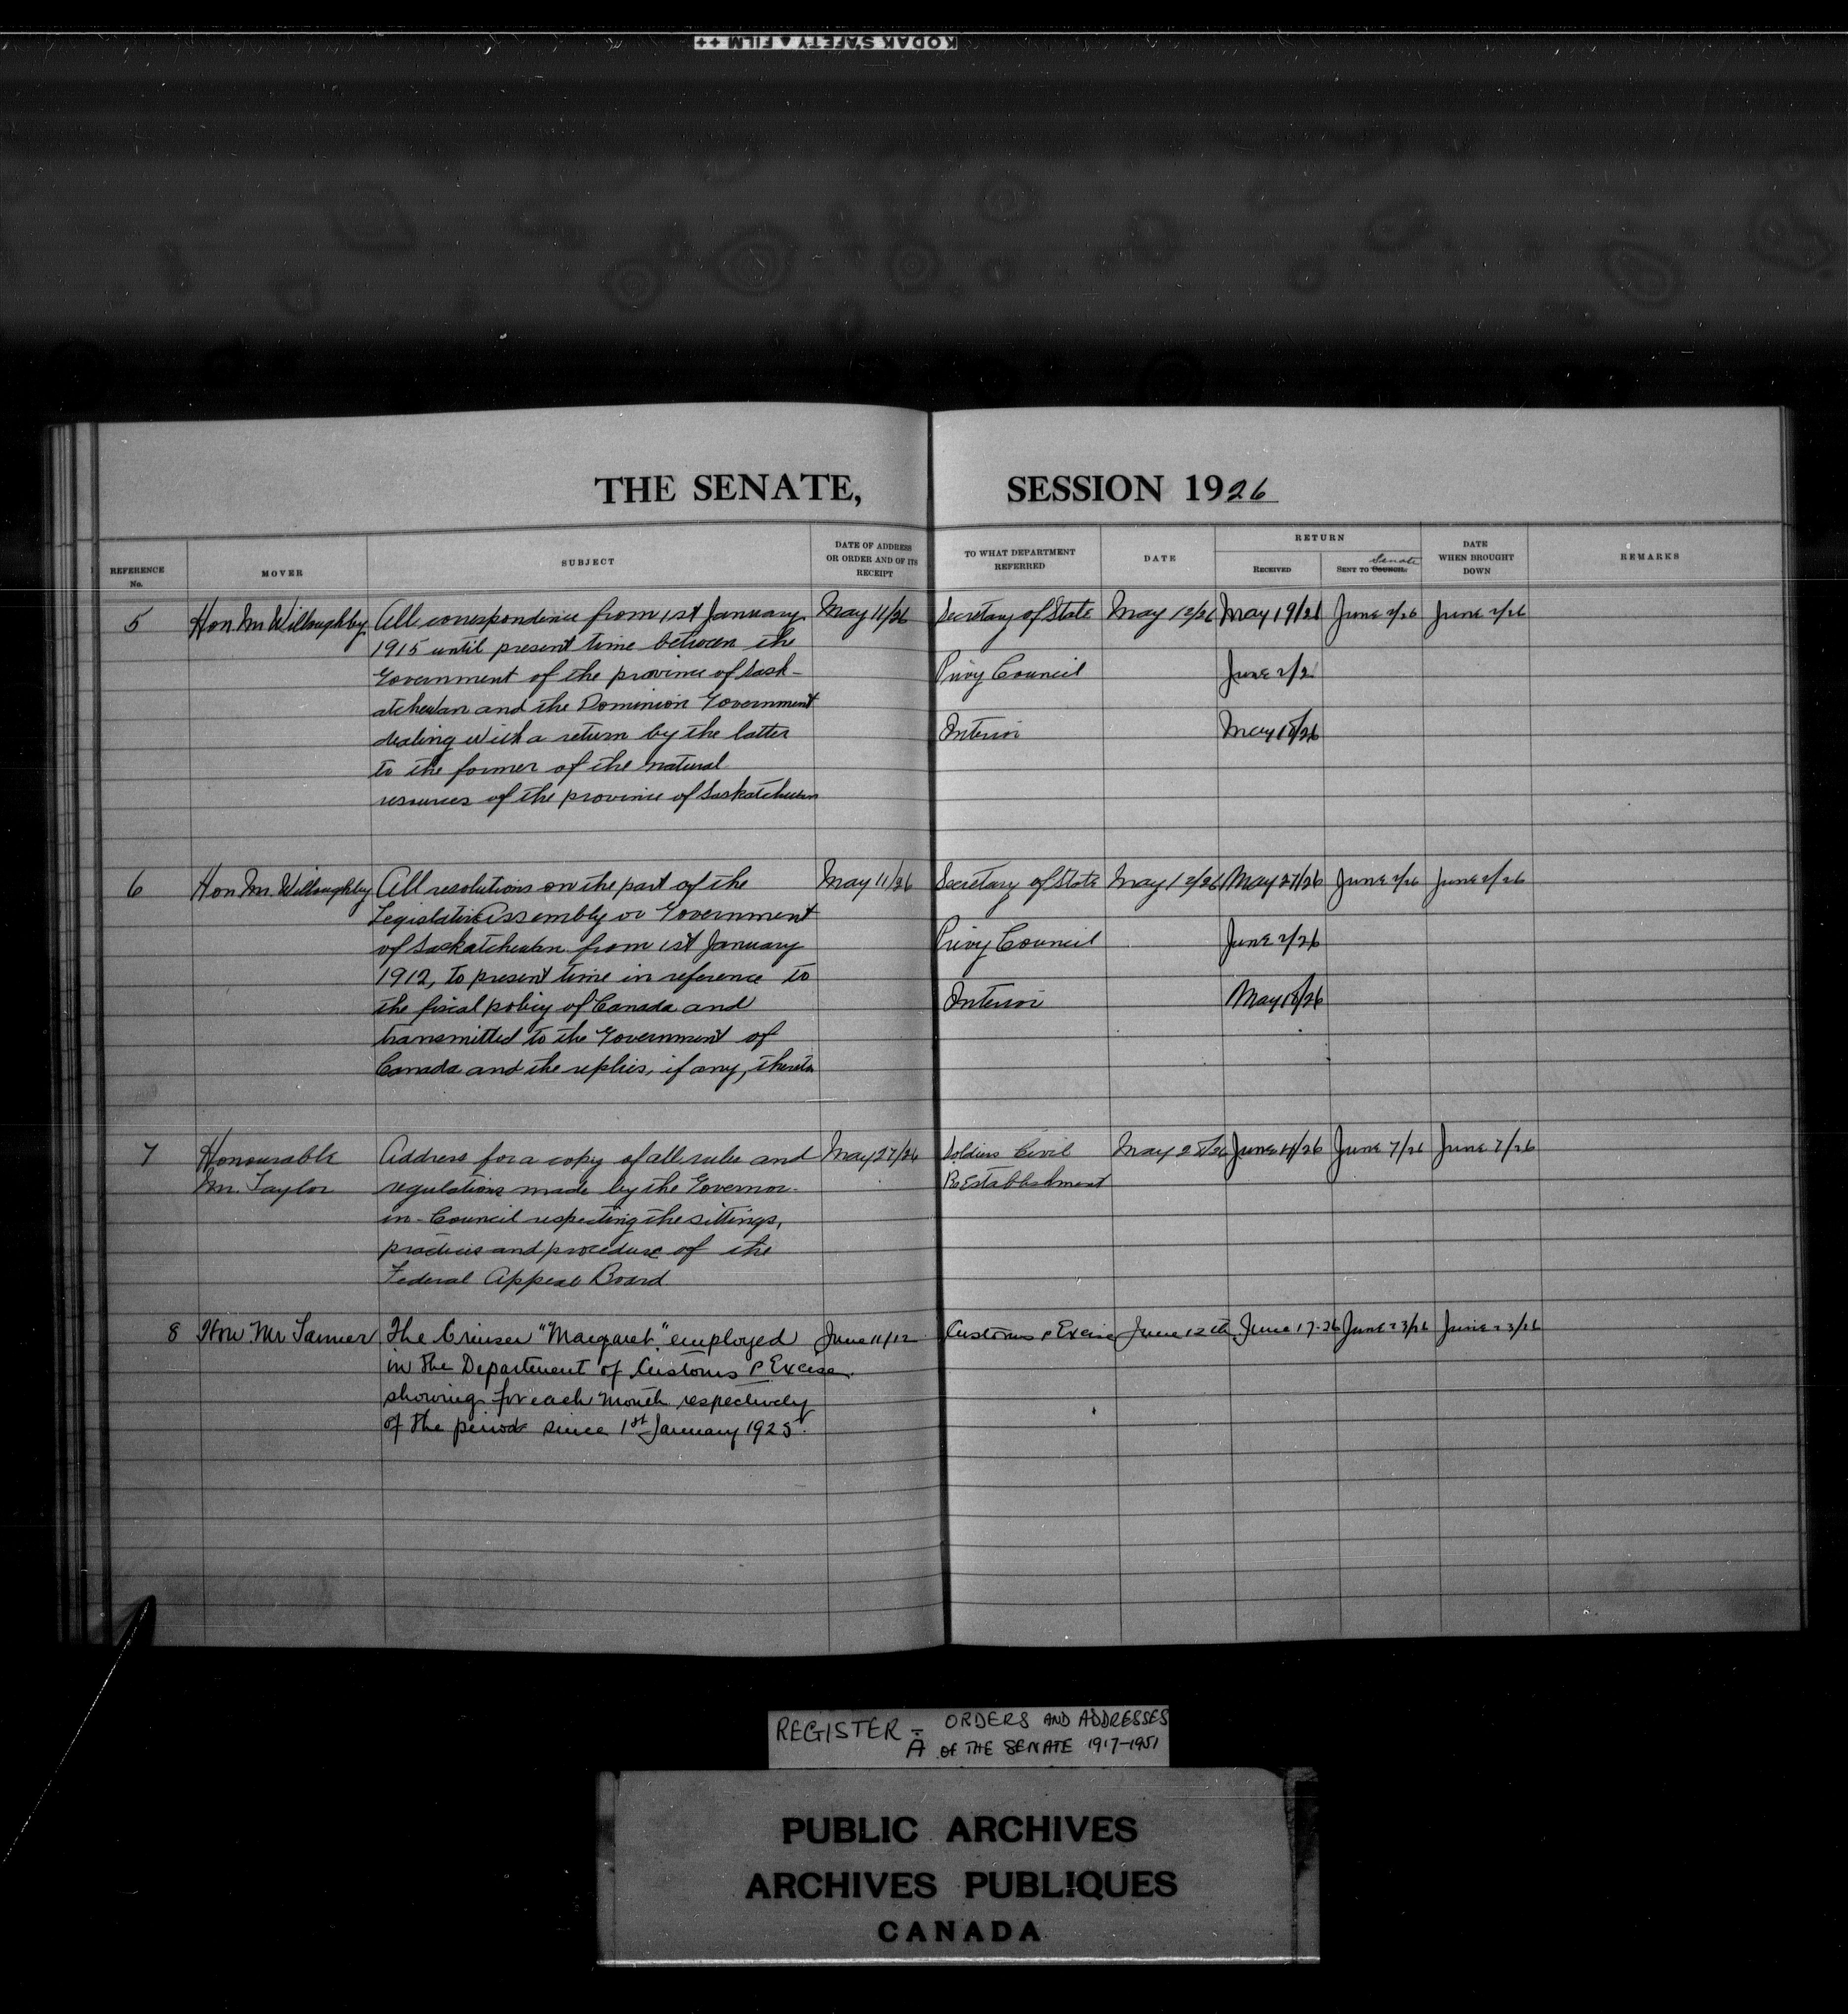 KODAK SAFETY ▲ FILM ++
THE SENATE, SESSION 1926
REFERENCE No.
MOVER
SUBJECT
DATE OF ADDRESS OR ORDER AND OF ITS RECEIPT
TO WHAT DEPARTMENT REFERRED
DATE
RETURN
RECEIVED
Senate
SENT TO COUNCIL
DATE WHEN BROUGHT DOWN
REMARKS
5 Hon Mr Willoughby All correspondence from 1st January May 11/26 Secretary of State May 12/26 May 19/26 June 2/26 June 2/26
1915 until present time between the
Government of the province of Sask- Privy Council June 2/2
atchewan and the Dominion Government
dealing with a return by the latter Interior May 18/26
to the former of the natural
resources of the province of Saskatchewan
6 Hon Mr. Willoughby All resolutions on the part of the May 11/26 Secretary of State May 12/26 May 27/26 June 2/26 June 2/26
Legislative Assembly or Government
of Saskatchewan from 1st January Privy Council June 2/26
1912, to present time in reference to
the fiscal policy of Canada and Interior May 18/26
transmitted to the Government of
Canada and the replies, if any, thereto
7 Honourable Address for a copy of all rules and May 27/26 Soldiers Civil May 28/26 June 4/26 June 7/26 June 7/26
Mr. Taylor regulations made by the Governor- ReEstablishment
in-Council respecting the sittings,
practices and procedure of the
Federal Appeal Board
8 Hon Mr Tanner The Cruiser "Margaret" employed June 11/12 Customs & Excise June 12th June 17-26 June 23/26 June 23/26
in the Department of Customs & Excise.
showing for each month respectively
of the period since 1st January 1925.
REGISTER - ORDERS AND ADDRESSES
A OF THE SENATE 1917-1951
PUBLIC ARCHIVES
ARCHIVES PUBLIQUES
CANADA